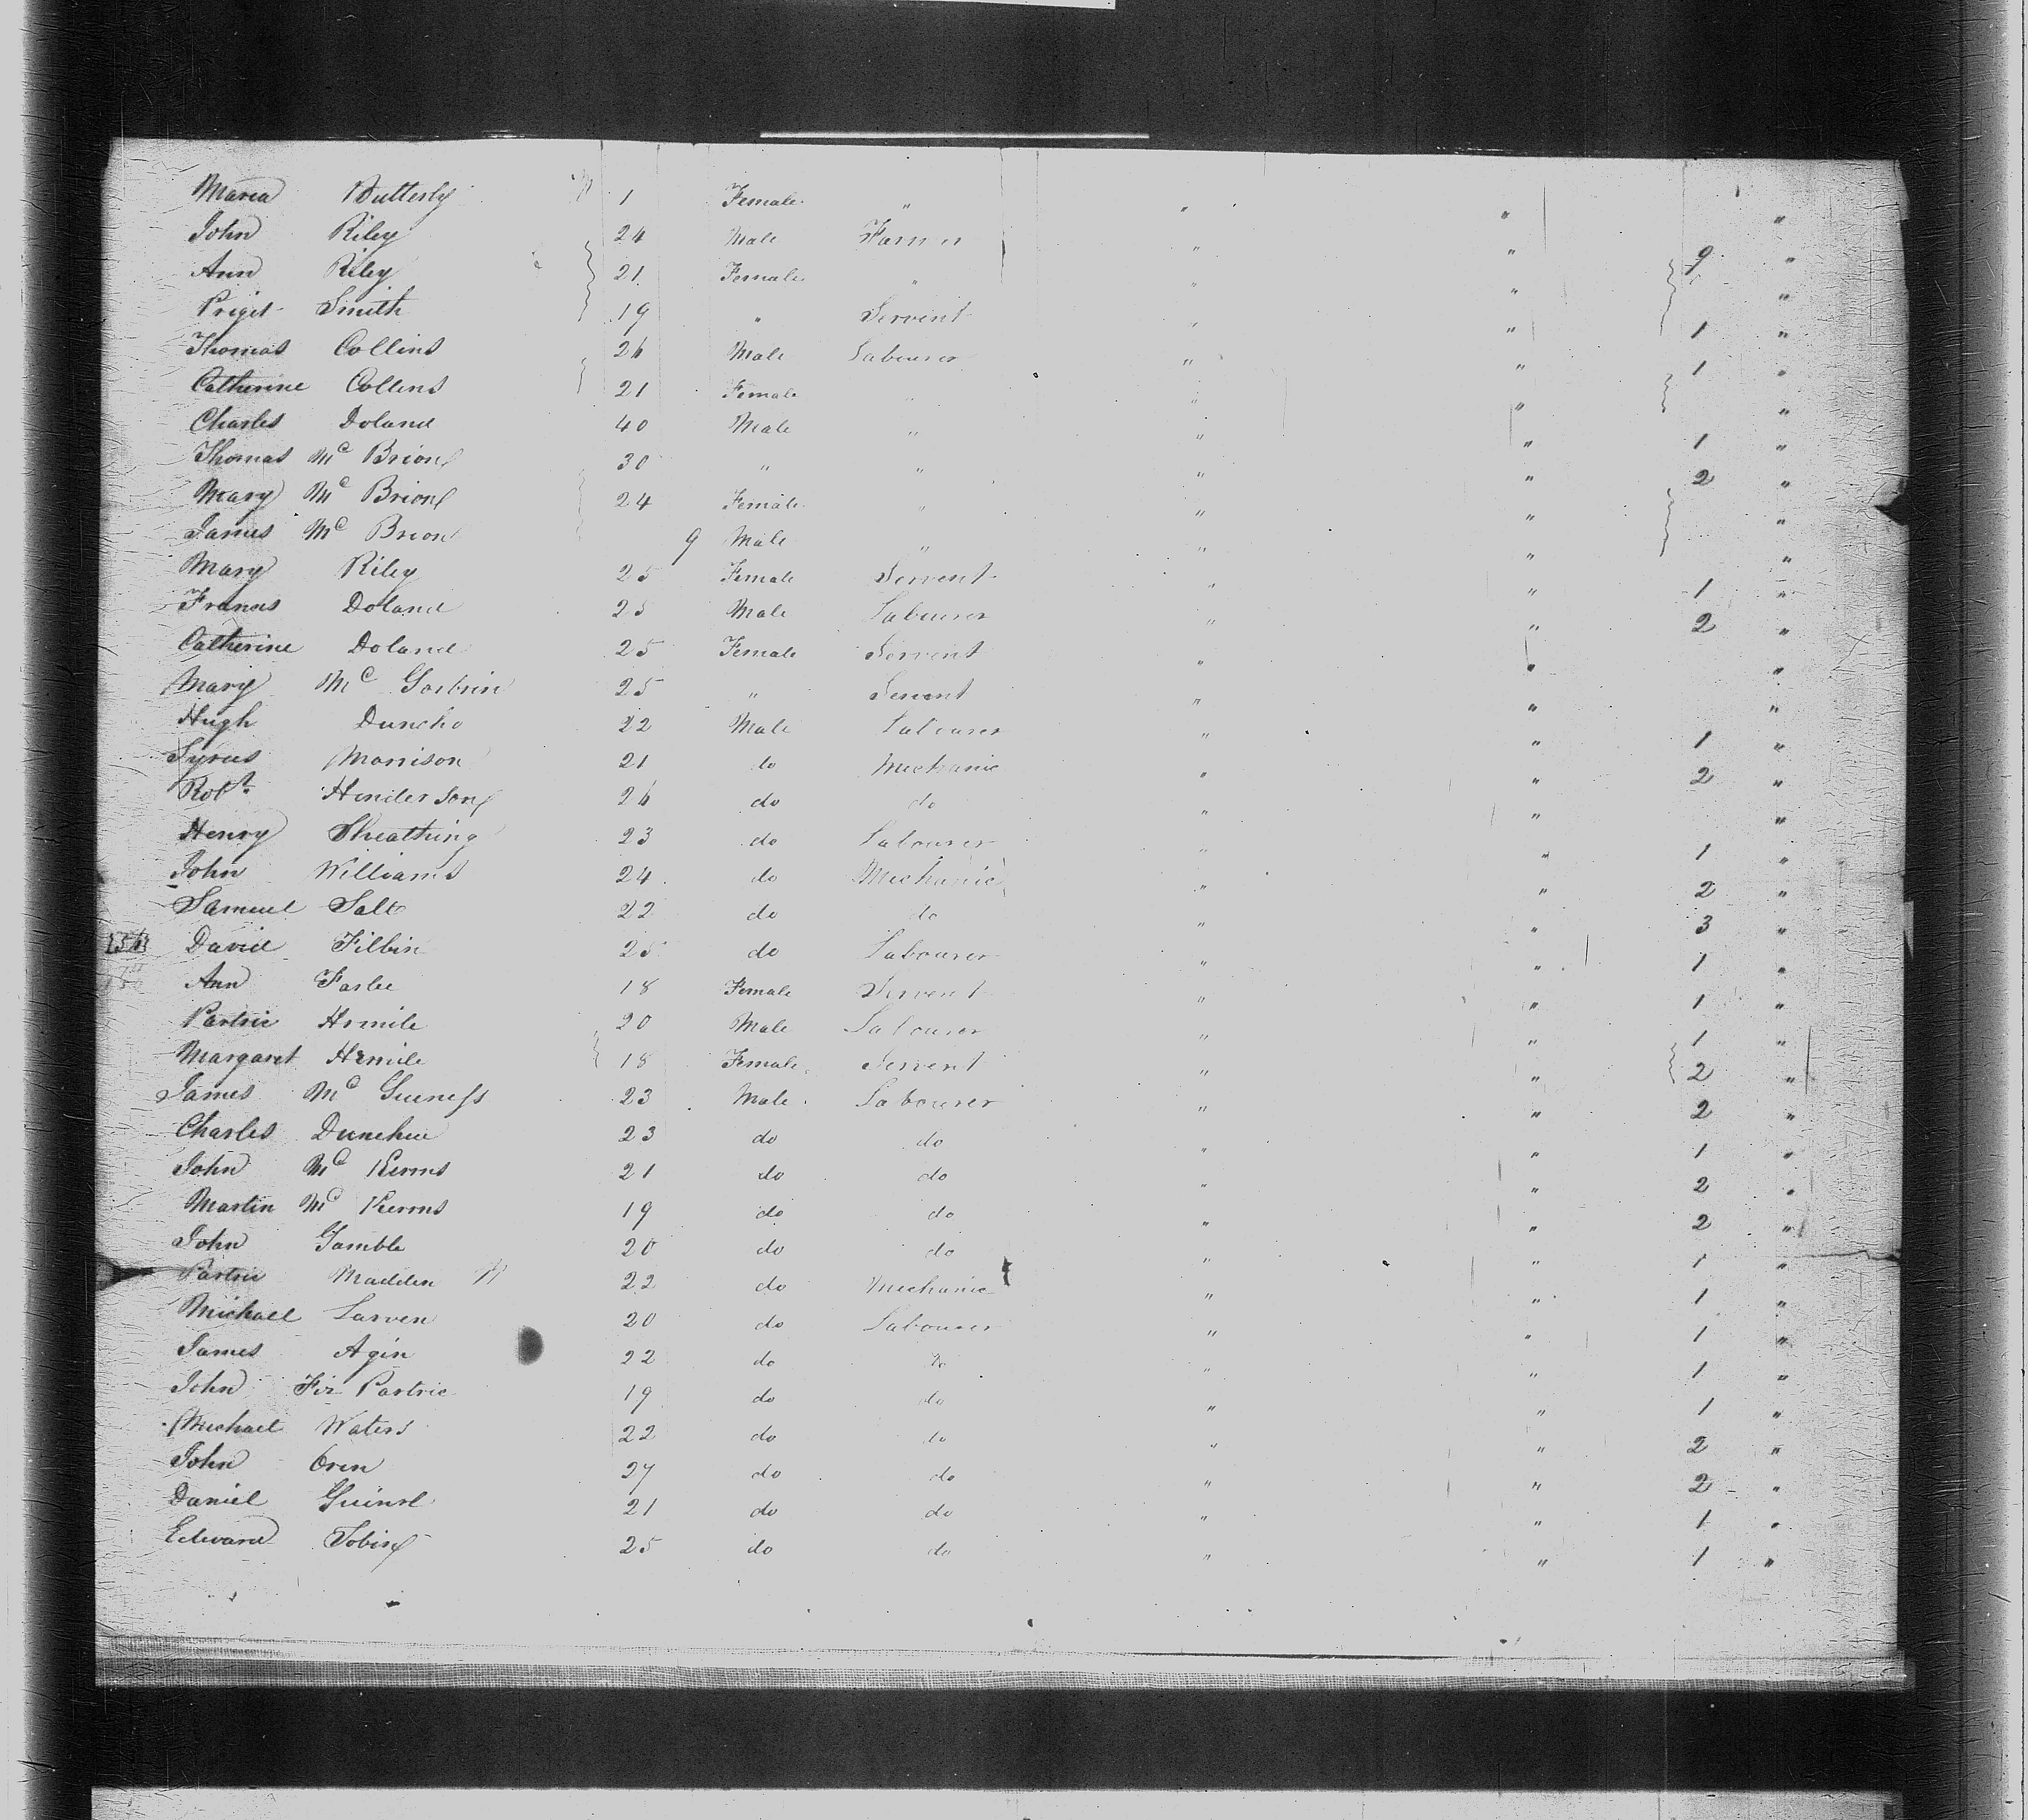 Maria Butterly 1 Female " " " "
John Riley 24 Male Farmer " " 9 "
Ann Riley 21 Female " " " "
Priget Smith 19 " Servent " " 1 "
Thomas Collins 26 Male Labourer " " 1 "
Catherine Collins 21 Female " " " "
Charles Doland 40 Male " " " 1 "
Thomas Mc Brion 30 " " " " 2 "
Mary Mc Brion 24 Female " " " "
James Mc Brion 9 Male " " " "
Mary Riley 25 Female Servent " " 1 "
Frances Doland 25 Male Labourer " " 2 "
Catherine Doland 25 Female Servent " " "
Mary Mc 25 " Servent " " "
Hugh Duncho 22 Male Labourer " " 1 "
Syrus Morrison 21 do Mechanic " " 2 "
Robt. Henderson 26 do do " " "
Henry Sheathing 23 do Labourer " " 1 "
John Williams 24 do Mechanic " " 2 "
Samuel Salt 22 do do " " 3 "
David Filbin 25 do Labourer " " 1 "
Ann Farlee 18 Female Servent " " 1 "
Partric 20 Male Labourer " " 1 "
Margaret 18 Female Servent " " 2 "
James Mc Guiness 23 Male Labourer " " 2 "
Charles Dunehue 23 do do " " 1 "
John Mc Kerms 21 do do " " 2 "
Martin Mc Kerms 19 do do " " 2 "
John Gamble 20 do do " " 1 "
Partric Madden 22 do Mechanic " " 1 "
Michael Larven 20 do Labourer " " 1 "
James Agin 22 do do " " 1 "
John Fiz Partric 19 do do " " 1 "
Michael Waters 22 do do " " 2 "
John Oren 27 do do " " 2 "
Daniel 21 do do " " 1 "
Edward Tobin 25 do do " " 1 "